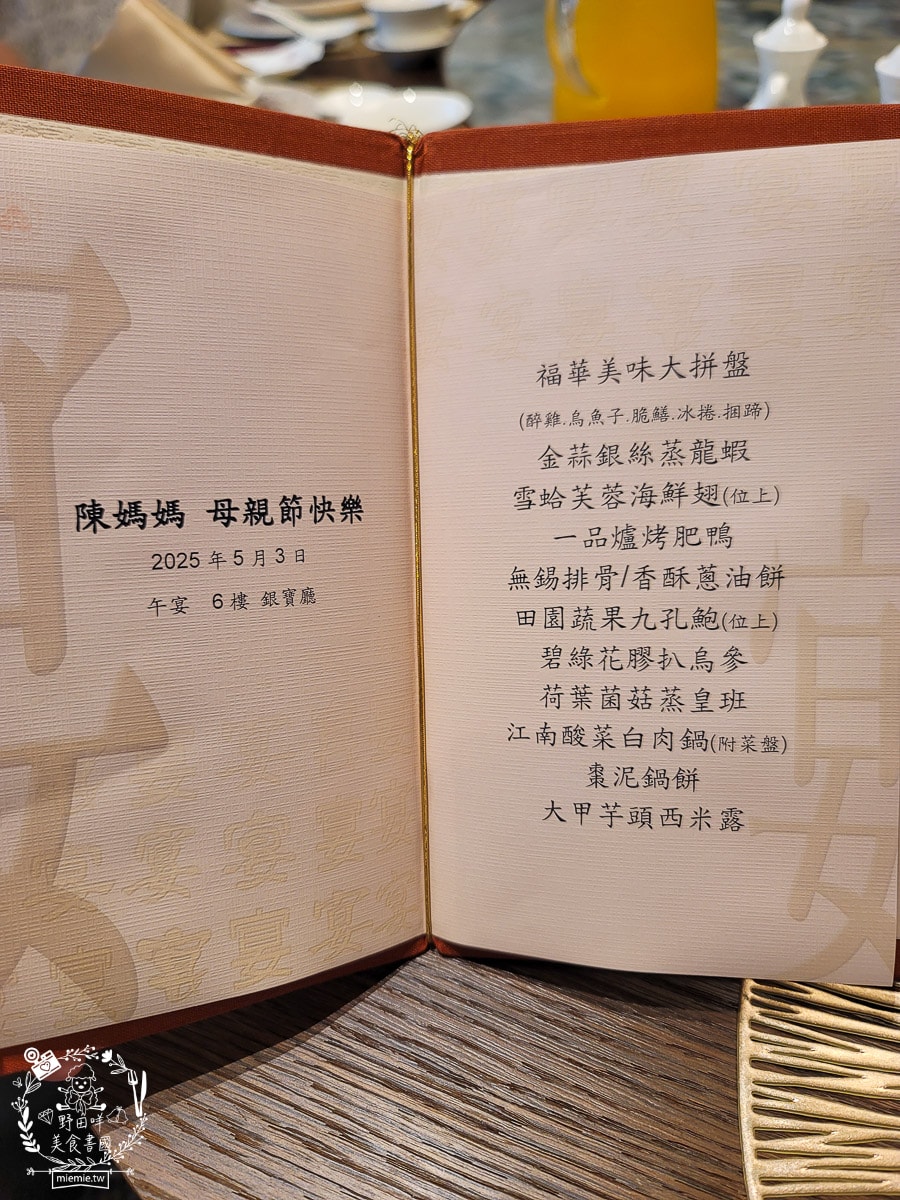 陳媽媽 母親節快樂
2025 年 5 月 3 日
午宴 6 樓 銀寶廳
福華美味大拼盤
(醉雞.烏魚子.脆鱔.冰捲.捆蹄)
金蒜銀絲蒸龍蝦
雪蛤芙蓉海鮮翅(位上)
一品爐烤肥鴨
無錫排骨/香酥蔥油餅
田園蔬果九孔鮑(位上)
碧綠花膠扒烏參
荷葉菌菇蒸皇班
江南酸菜白肉鍋(附菜盤)
棗泥鍋餅
大甲芋頭西米露
野田咩
美食書國
miemie.tw